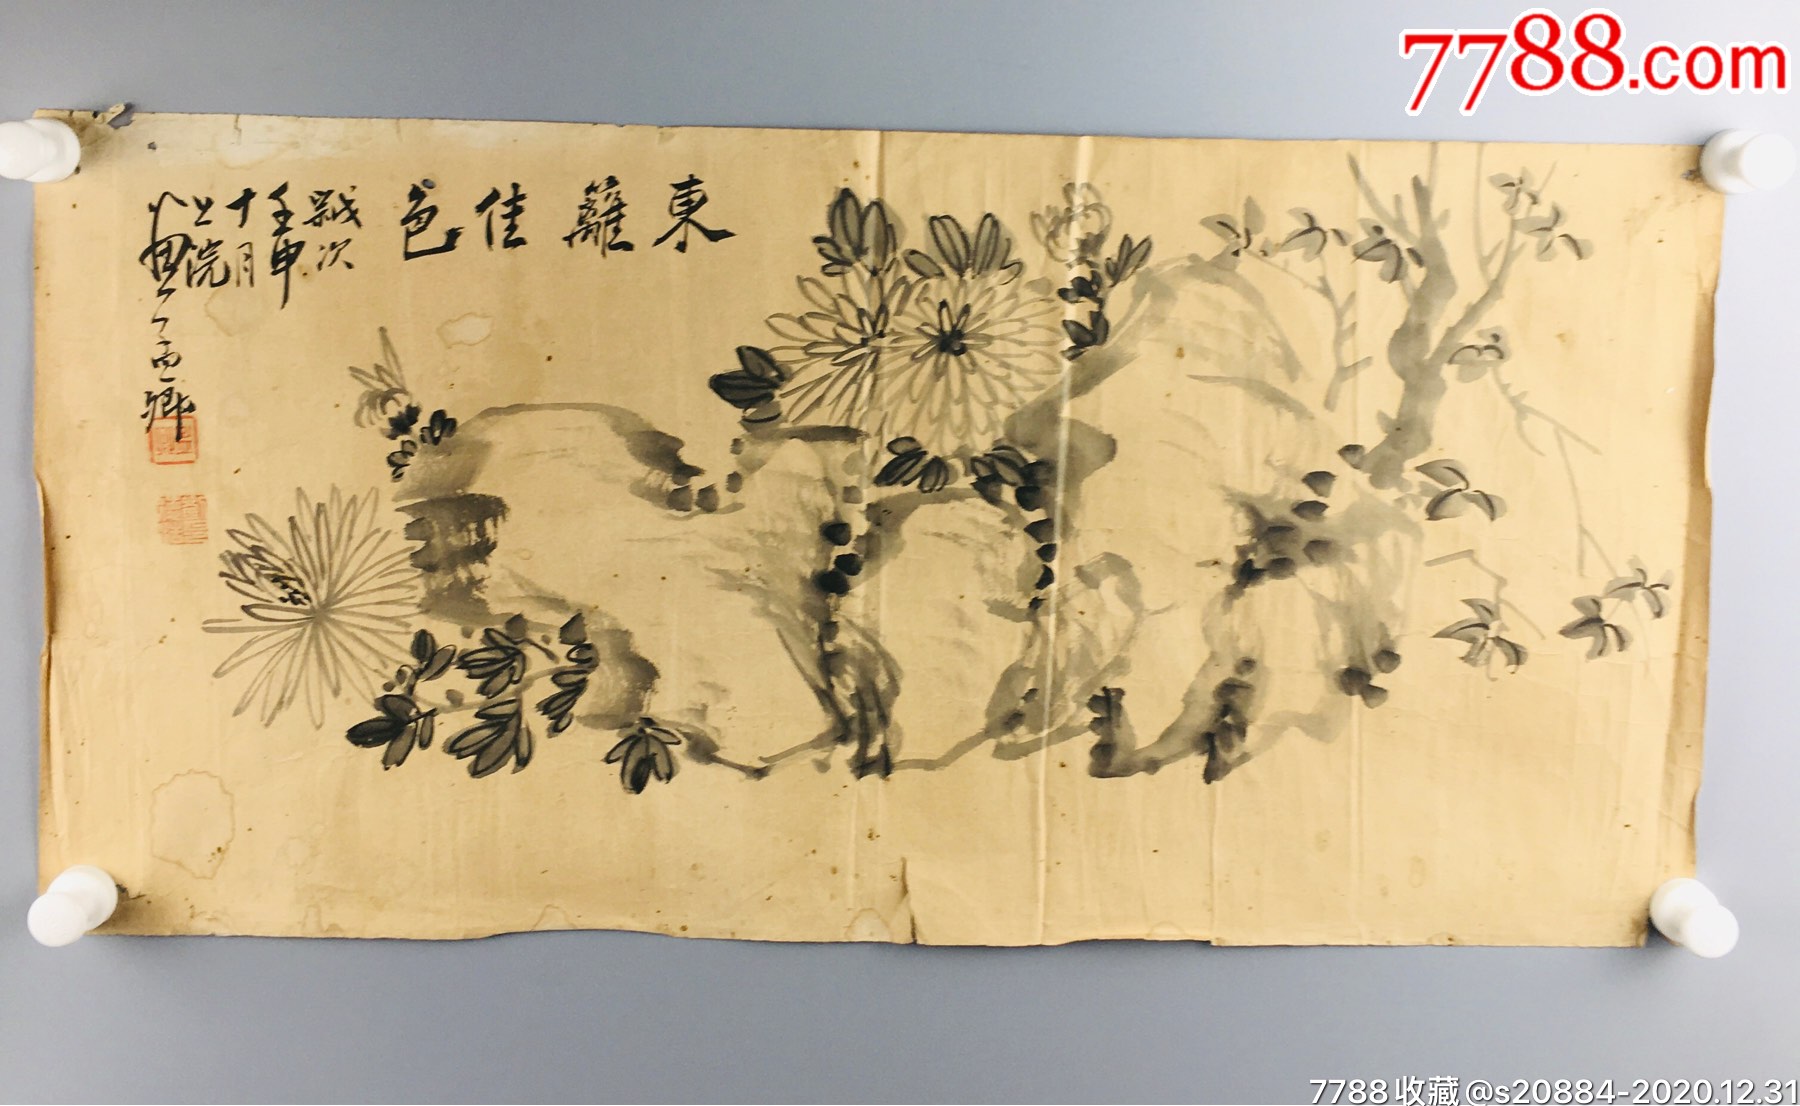 7788.com
東籬佳色
歲次
壬申
十月
上浣
7788收藏@s20884-2020.12.31